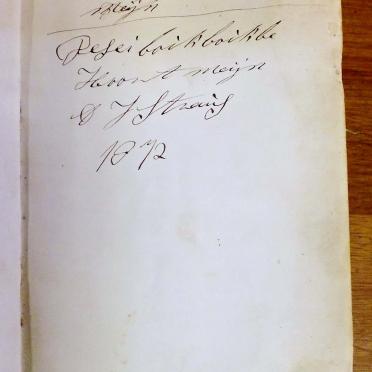 meijn
Deseiboikboikbe
Hoort meijn
D J Straus
1872